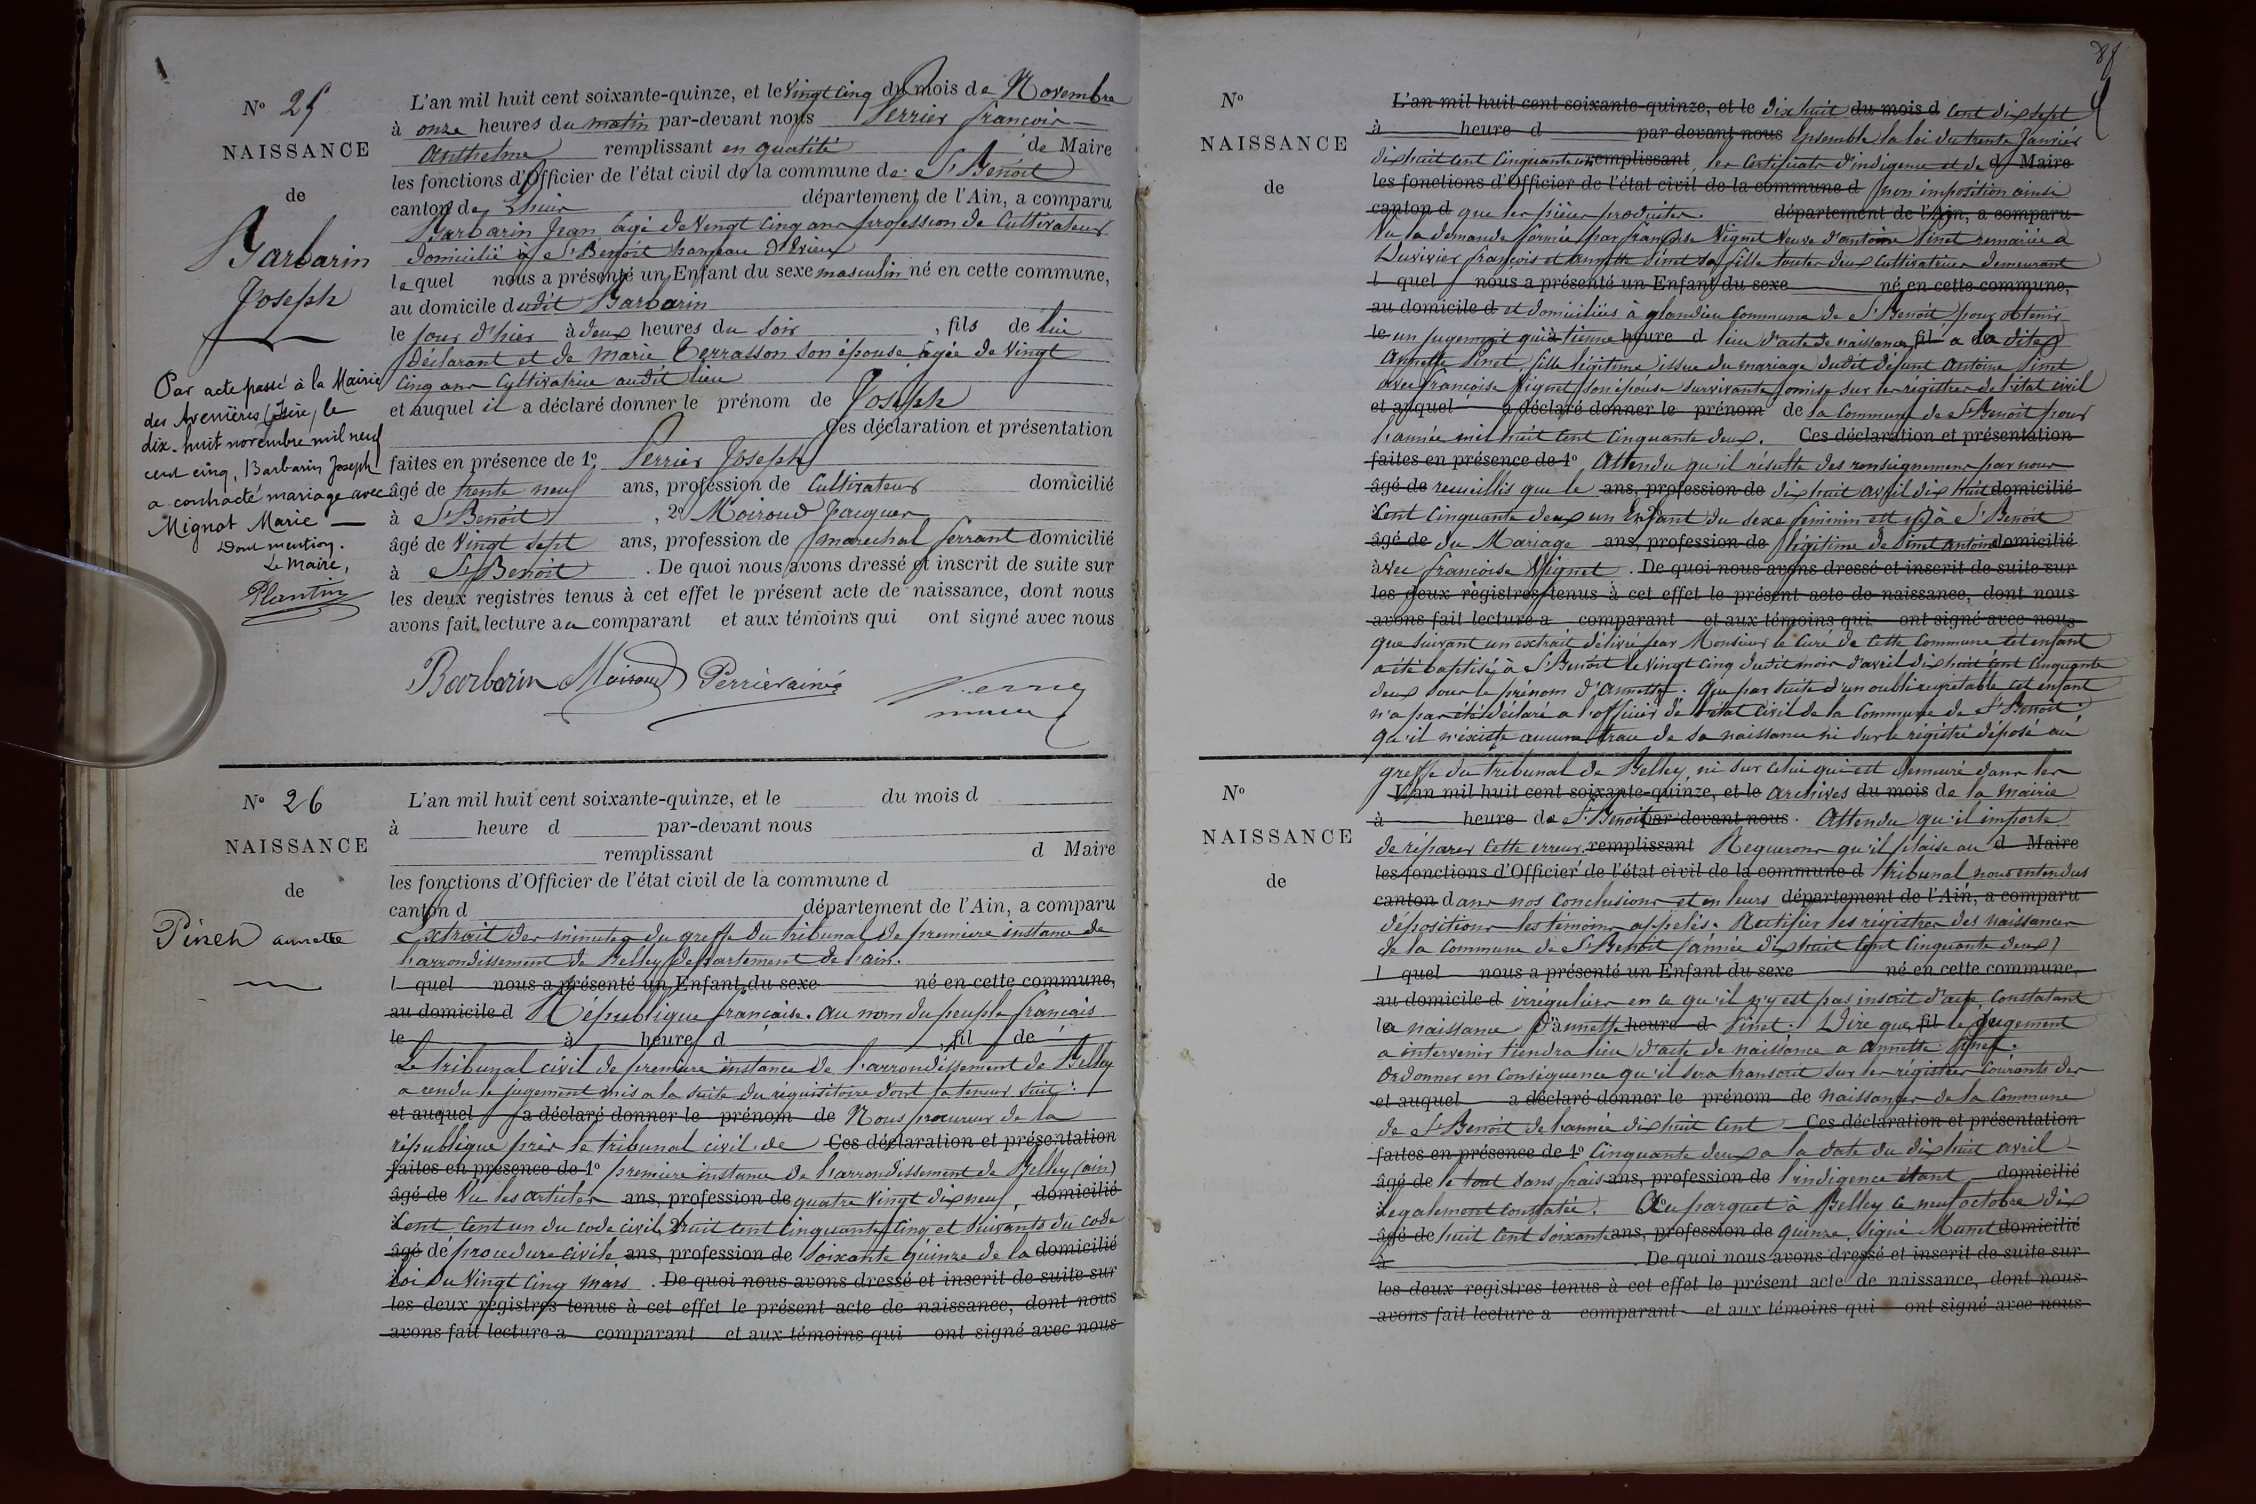 N° 25
NAISSANCE
de
Barbarin
Joseph
Par acte passé à la Mairie
des Avenières (Isère) le
dix-huit novembre mil neuf
cent cinq, Barbarin Joseph
a contracté mariage avec
Mignot Marie —
Dont mention.
Le Maire,
Plantin
L'an mil huit cent soixante-quinze, et le Vingt Cinq du mois de Novembre
à onze heures du matin par-devant nous Perrier françois
Anthelme remplissant en qualité de Maire
les fonctions d'Officier de l'état civil de la commune de St Benoit
canton de Lhuis département de l'Ain, a comparu
Barbarin Jean âgé de Vingt Cinq ans profession de Cultivateur
domicilié à St Benoit hameau d'Evieu
lequel nous a présenté un Enfant du sexe masculin né en cette commune,
au domicile dudit Barbarin
le jour d'hier à deux heures du soir, fils de lui
Déclarant et de Marie Terrasson son épouse âgée de Vingt
Cinq ans Cultivatrice audit lieu
et auquel il a déclaré donner le prénom de Joseph
Ces déclaration et présentation
faites en présence de 1° Perrier Joseph
âgé de trente neuf ans, profession de Cultivateur domicilié
à St Benoit, 2° Moiroud Jacques
âgé de Vingt Sept ans, profession de marechal ferrant domicilié
à St Benoit. De quoi nous avons dressé et inscrit de suite sur
les deux registres tenus à cet effet le présent acte de naissance, dont nous
avons fait lecture au comparant et aux témoins qui ont signé avec nous
Barbarin Moiroud Perrier ainé
N° 26
NAISSANCE
de
Pinet annette
L'an mil huit cent soixante-quinze, et le du mois d
à heure d par-devant nous
remplissant d Maire
les fonctions d'Officier de l'état civil de la commune d
canton d département de l'Ain, a comparu
Extrait des minutes du greffe du tribunal de premiere instance de
l'arrondissement de Belley département de l'ain.
l quel nous a présenté un Enfant du sexe né en cette commune,
au domicile d République française. au nom du peuple français
le à heure d, fil de
Le tribunal civil de premiere instance de l'arrondissement de Belley
a rendu le jugement mis a la suite du réquisitoire dont la teneur suit:
et auquel a déclaré donner le prénom de Nous procureur de la
république près le tribunal civil de Ces déclaration et présentation
faites en présence de 1° premiere instance de l'arrondissement de Belley (ain)
âgé de Vu les articles ans, profession de quatre Vingt dix neuf, domicilié
Cent, Cent un du code civil, huit cent cinquante Cinq et suivants du code
âgé de procedure civile, ans, profession de soixante quinze de la domicilié
loi du Vingt Cinq Mars. De quoi nous avons dressé et inscrit de suite sur
les deux registres tenus à cet effet le présent acte de naissance, dont nous
avons fait lecture a comparant et aux témoins qui ont signé avec nous
N°
NAISSANCE
de
L'an mil huit cent soixante-quinze, et le dix huit du mois d Cent dix sept
à heure d par-devant nous Ensemble la loi du trente Janvier
dix huit cent Cinquante un remplissant, les Certificats d'indigence et de d Maire
les fonctions d'Officier de l'état civil de la commune d non imposition ainsi
canton d que les pièces produites. département de l'Ain, a comparu
Vu la demande formée par françoise Vignet Veuve d'antoine Pinet remariée a
Duvivier françois et annette Pinet sa fille toutes deux Cultivatrices demeurant
l quel nous a présenté un Enfant du sexe né en cette commune,
au domicile d et domiciliées à glandieu Commune de St Benoit pour obtenir
le un jugement qui à tienne heure d lieu d'acte de naissance, fil a la dite
Annette Pinet, fille légitime issue du mariage dudit défunt Antoine Pinet
avec françoise Vignet son épouse survivante, omise sur les registres de l'état civil
et auquel a déclaré donner le prénom de la Commune de St Benoit pour
l'année mil huit Cent Cinquante deux. Ces déclaration et présentation
faites en présence de 1° Attendu qu'il résulte des renseignemens par nous
âgé de recueillis que le ans, profession de dix huit avril dix huit domicilié
Cent Cinquante deux un Enfant du sexe feminin est né à St Benoit
âgé de du Mariage ans, profession de légitime de Pinet Antoine domicilié
avec françoise Vignet. De quoi nous avons dressé et inscrit de suite sur
les deux registres tenus à cet effet le présent acte de naissance, dont nous
avons fait lecture a comparant et aux témoins qui ont signé avec nous
que suivant un extrait délivré par Monsieur le Curé de Cette Commune Cet enfant
a été baptisé à St Benoit le Vingt Cinq dudit mois d'avril dix huit Cent Cinquante
deux sous le prénom d'annette. Que par suite d'un oubli regretable Cet enfant
n'a pas été déclaré a l'officier de l'état Civil de la Commune de St Benoit.
Qu'il n'existe aucune trace de sa naissance ni sur le registre déposé au
greffe du tribunal de Belley, ni sur Celui qui est demeuré dans les
N°
NAISSANCE
de
L'an mil huit cent soixante-quinze, et le archives du mois de la mairie
à heure de St Benoit par-devant nous. Attendu qu'il importe
de réparer Cette erreur. remplissant Requerons qu'il plaise au d Maire
les fonctions d'Officier de l'état civil de la commune d tribunal nous entendus
canton dans nos Conclusions et en leurs département de l'Ain, a comparu
dépositions les témoins appelés. Rectifier les registres des naissances
de la Commune de St Benoit (année dix huit Cent Cinquante deux)
l quel nous a présenté un Enfant du sexe né en cette commune,
au domicile d irréguliers en ce qu'il n'y est pas inscrit d'acte Constatant
la naissance d'annette heure d Pinet. Dire que, fil le jugement
a intervenir tiendra lieu d'acte de naissance a Annette Pinet.
Ordonner en Conséquence qu'il sera transcrit sur les registres Courants des
et auquel a déclaré donner le prénom de naissances de la Commune
de St Benoit de l'année dix huit Cent Ces déclaration et présentation
faites en présence de 1° Cinquante deux a la date du dix huit avril
âgé de le tout sans frais ans, profession de l'indigence étant domicilié
légalement Constatée. Au parquet à Belley le neuf octobre dix
âgé de huit Cent Soixante ans, profession de quinze Signé Munet domicilié
à. De quoi nous avons dressé et inscrit de suite sur
les deux registres tenus à cet effet le présent acte de naissance, dont nous
avons fait lecture a comparant et aux témoins qui ont signé avec nous